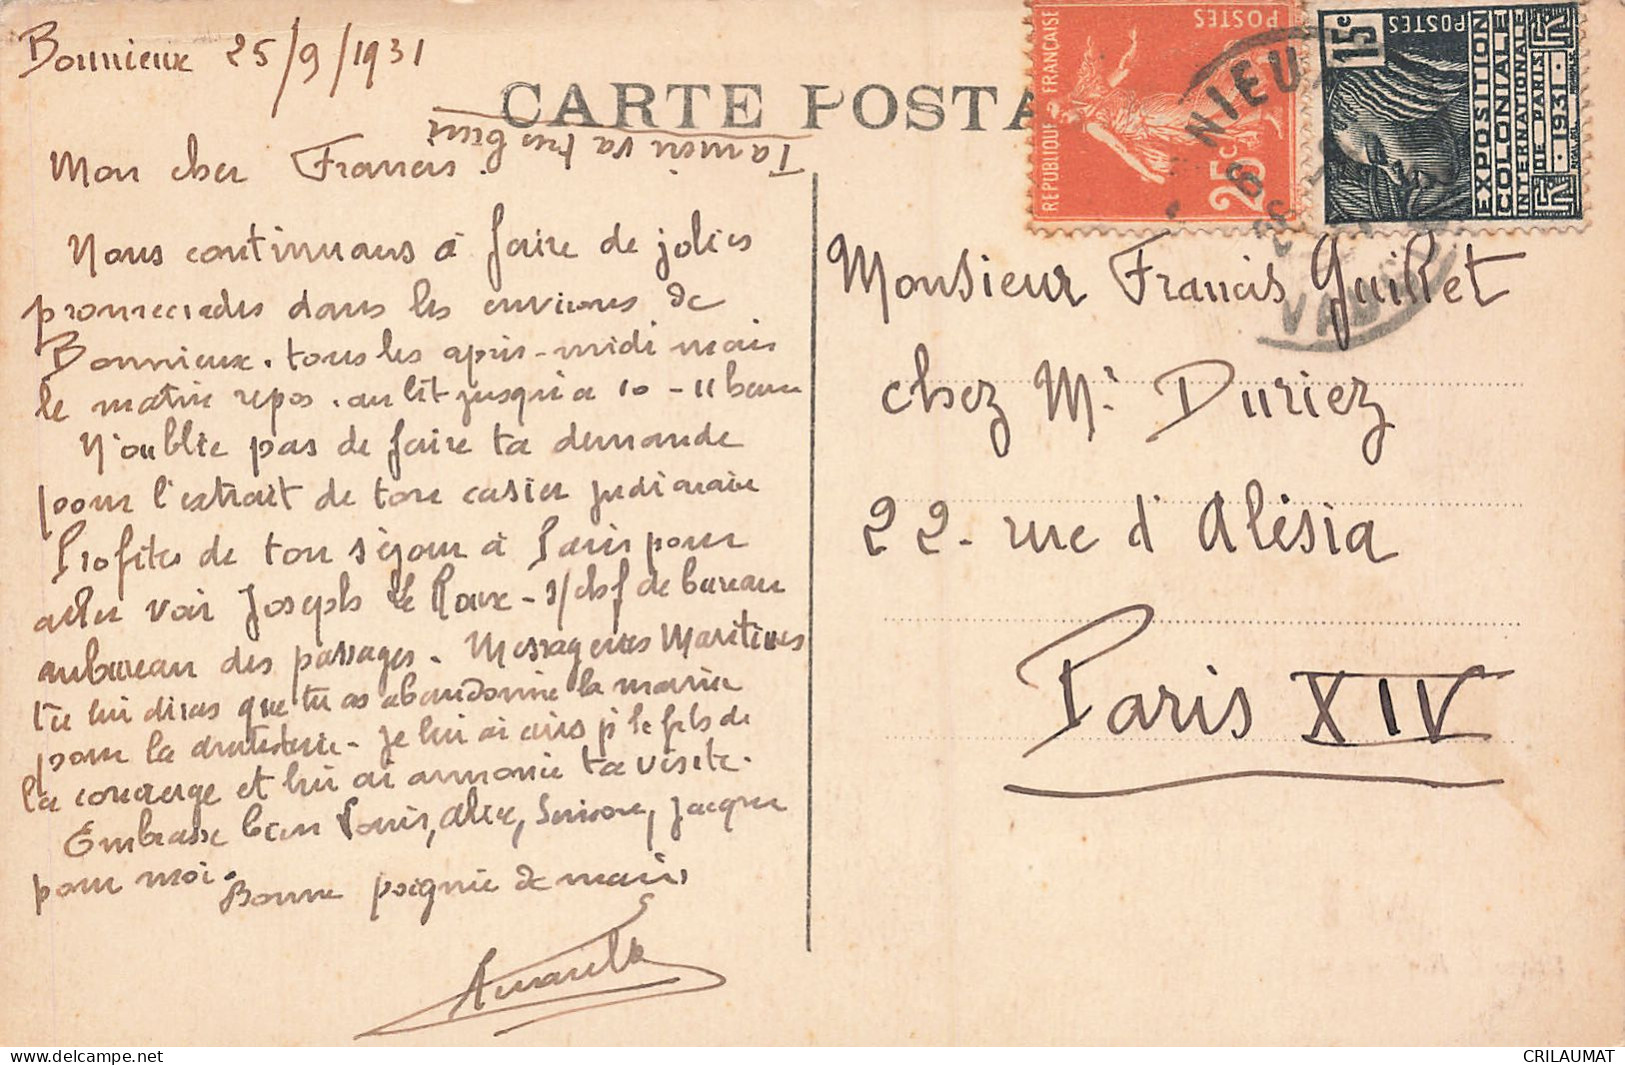 Bonnieux 25/9/1931
CARTE POSTA
Mon cher Francis.
va très bien
Nous continuons à faire de jolies
promenades dans les environs de
Bonnieux. tous les après-midi mais
le matin repos. au lit jusqu'à 10 - 11 heures
N'oublie pas de faire ta demande
pour l'extrait de ton casier judiciaire
Profites de ton séjour à Paris pour
aller voir Joseph Le Roux - s/chef de bureau
au bureau des passages. Messageries Maritimes
tu lui diras que tu as abandonné la marine
pour la - je lui ai écris pr le fils de
la concierge et lui ai annoncé ta visite.
Embrasse bien Louis, Alex, Simone, Jacques
pour moi.
Bonne poignée de mains
REPUBLIQUE FRANÇAISE
POSTES
25c
15c
POSTES
EXPOSITION
COLONIALE
INTERNATIONALE
DE PARIS
1931
NIEUX
VAU
Monsieur Francis Guillet
chez Mr Duriez
22 - rue d'Alésia
Paris XIV
delcampe.net
CRILAUMAT